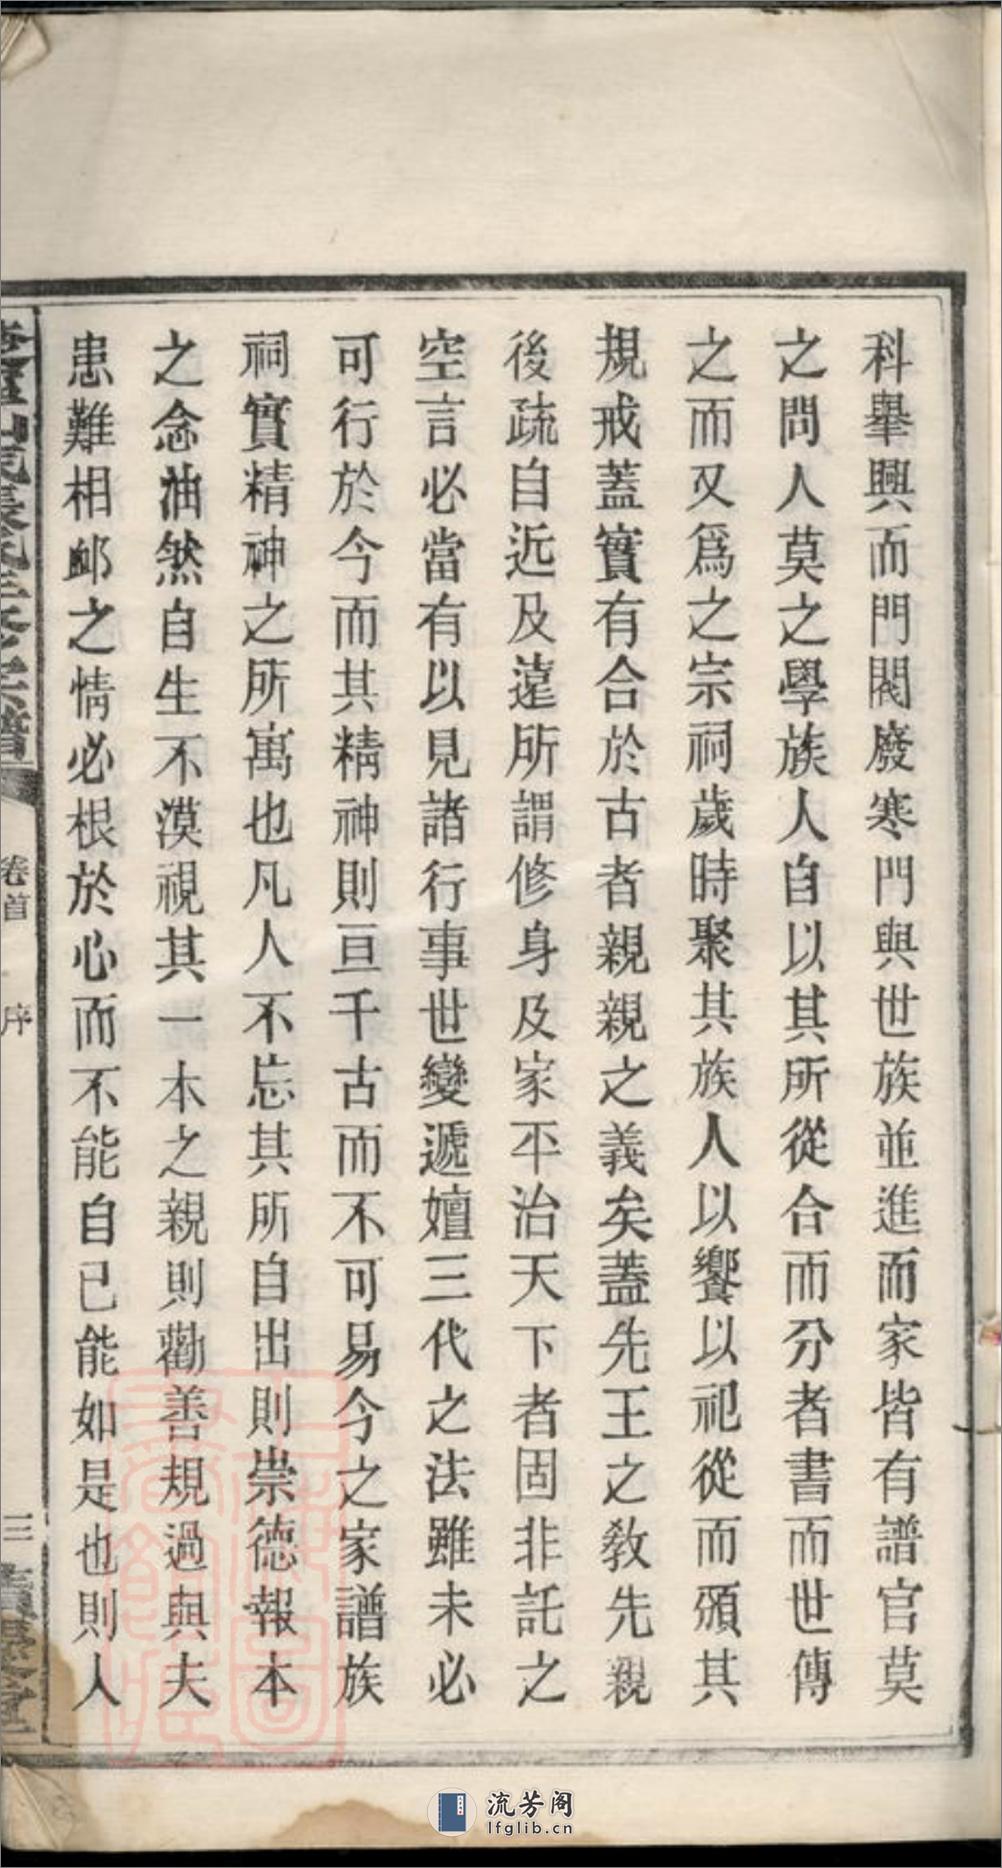 科舉興而門閥廢寒門與世族並進而家皆有譜官莫
之問人莫之學族人自以其所從合而分者書而世傳
之而又爲之宗祠歲時聚其族人以饗以祀從而頒其
規戒蓋實有合於古者親親之義矣蓋先王之敎先親
後疏自近及遠所謂修身及家平治天下者固非託之
空言必當有以見諸行事世變遞嬗三代之法雖未必
可行於今而其精神則亘千古而不可易今之家譜族
祠實精神之所寓也凡人不忘其所自出則崇德報本
之念油然自生不漠視其一本之親則勸善規過與夫
患難相邮之情必根於心而不能自已能如是也則人
卷首
序
三
流芳阁
lfglib.cn